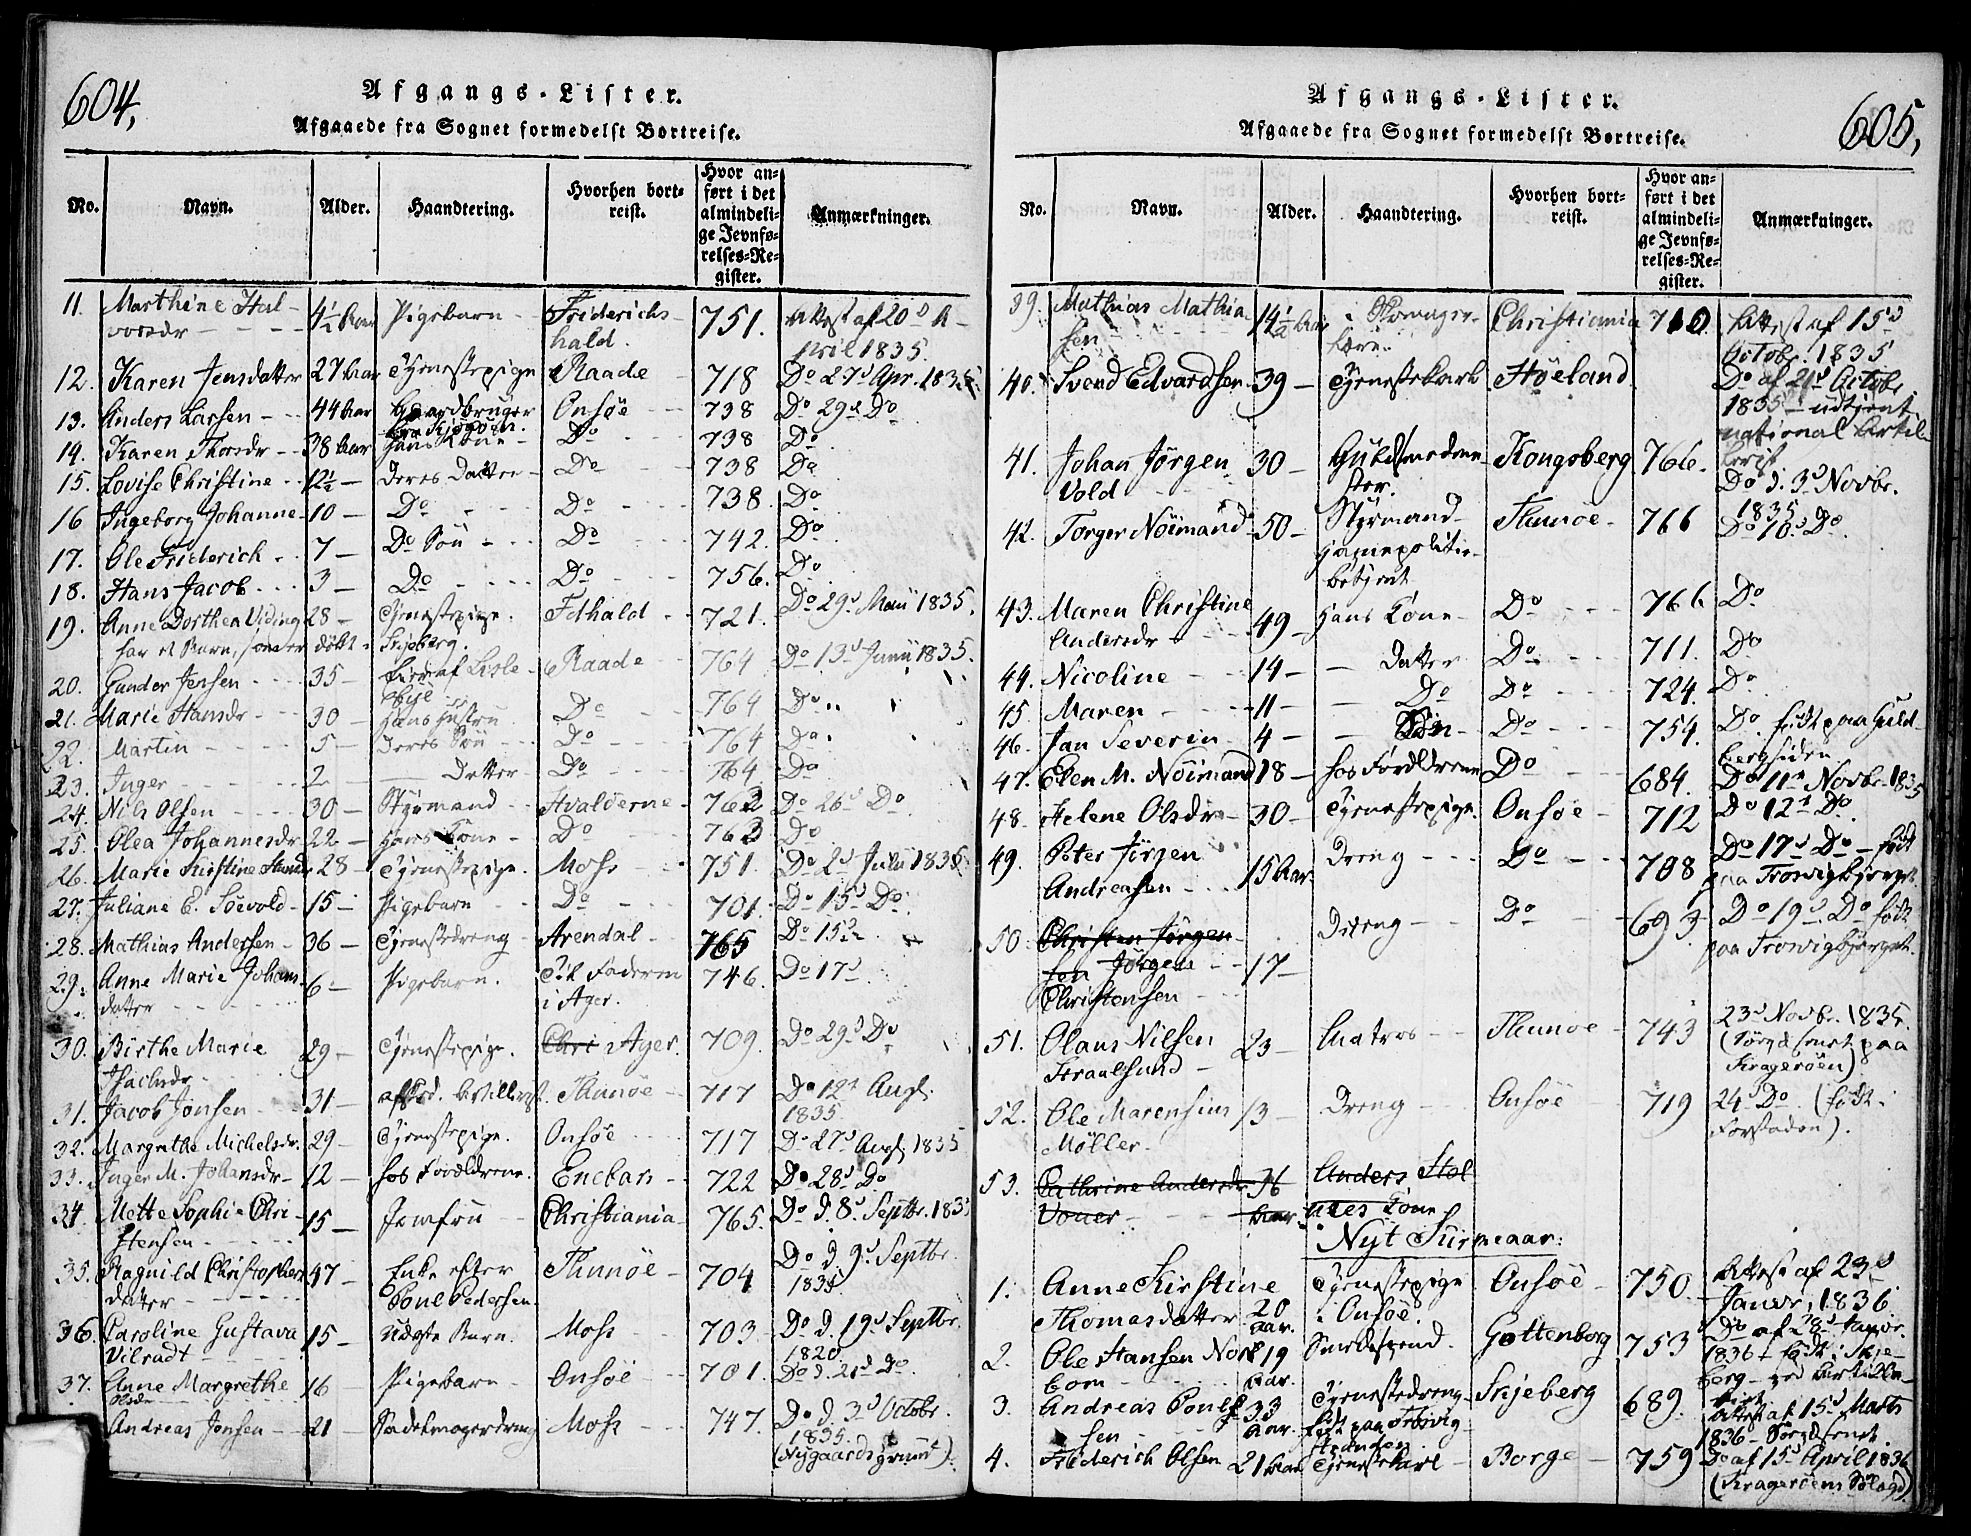 604,
Afgangs-Lister.
Afgaaede fra Sognet formedelst Bortreise.
No. Navn. Alder. Haandtering. Hvorhen bortreist. Hvor anført i det almindelige Jevnførelses-Register. Anmærkninger.
11. Marthine Halvorsdr 4½ Aar Pigebarn Friderichshald. 751. Attest af 20d April 1835.
12. Karen Jensdatter 27 Aar Tjenestepige Raade 718 Do 27d Apr. 1835
13. Anders Larsen 44 Aar Gaardbruger Onsøe 738 Do 29d Do
14. Karen Thorsdr 38 Aar Hans Kone Do 738 Do
15. Lovise Christine 12½ Deres Datter Do 738 Do
16 Ingeborg Johanne 10 Do Do 738. Do
17. Ole Friderich 7 Do Søn Do 742. Do
18. Hans Jacob 3 Do Do 756. Do
19. Anne Dorthea Viding 28 Tjenestepige. Fdhald 721. Do 29d Maii 1835.
har et Barn, som er døbt i Skjeberg.
20. Gunder Jensen 35 Raade 764 Do 13d Junii 1835.
21. Marie Hansdr 30 Hans Hustru Do 764 Do
22. Martin 5 Deres Søn Do 764 Do
23. Inger 2 Datter Do 764 Do
24. Nils Olsen 30 Styrmand Hvaløerne 762 Do 26d Do
25. Olea Johannesdr 22 Hans Kone Do 763 Do
26. Marie Kirstine 28 Tjenestepige. Moss 751. Do 2d Julii 1835
27. Juliane E. Soevold 15 Pigebarn Do 701. Do 15d Do
28. Mathias Andersen 36 Tjenestedreng Arendal 765 Do 15d
29. Anne Marie Johansdatter 6 Pigebarn. Til Faderen i Ager. 746. Do 17d
30. Birthe Marie Isachsdr 29 Tjenestepige. Chri Ager. 709. Do 29d Do
31. Jacob Jonsen 31 afsked. Artillerist Thunøe 717 Do 12d Aug. 1835
32. Margrethe Michelsdr. 29 Tjenestepige. Onsøe 717 Do 27d Aug. 1835
33. Inger M. Johansdr 12 hos Forældrene. Eneban 722 Do 28d Do
34. Mette Sophie Christensen 15 Jomfru Christiania 765. Do d. 8d Septbr. 1835
35. Ragnild Christophersdatter 47 Enke efter Poul Pedersen. Thunøe 704 Do d. 9d Septbr. 1835
36. Caroline Gustava Vilradt 15 uægte Barn. Moss 703 Do d. 19d Septbr. 1820
37. Anne Margrethe Olsdr 16 Pigebarn Onsøe 701. Do d. 21d Do
Andreas Jonsen 21 Sadelmagerdreng Moss 747. Do d. 3d Octobr. 1835. (Nygaards grund).
605,
Afgangs-Lister.
Afgaaede fra Sognet formedelst Bortreise.
No. Navn. Alder. Haandtering. Hvorhen bortreist. Hvor anført i det almindelige Jevnførelses-Register. Anmærkninger.
39. Mathias Mathiasen 14½ Aar Christiania 710 Attest af 15d Octobr. 1835
40. Svend Edvardsen 39 Tjenestekarl Høeland Do af 21d Octobr 1835 – udtjent national
41. Johan Jørgen Vold 30 Kongsberg 766. Do d. 3d Novbr. 1835
42. Torger Nöimand 50 Styrmand Thunøe 766 Do 10d Do
43. Maren Christine Andersdr 49 Hans Kone Do 766 Do
44. Nicoline 14 Datter Do 711. Do
45. Maren 11 Do Do 724. Do
46. Jan Severin 4 Søn Do 754. Do. født paa Guldbergsiden
47. Elen M. Nöimand 18 hos Forældrene Do 684. Do 11te Novbr. 1835
48. Helene Olsdr 30 Tjenestepige. Onsøe 712 Do 12d Do
49. Peter Jørgen Andreasen 15 Aar. Dreng Do 708 Do 17d Do – født paa Trosvigbjerget.
50. Christen Jørgensen Jørgen Christensen 17 Dreng Do 693 Do 19d Do født paa Trosvigbjerget.
51. Olaus Nilsen Straalsund 23 Matros Thunøe 743 23d Novbr. 1835. (Sørgd senest paa Kragerøen)
52. Ole Marensius Møller. 13 Dreng Onsøe 719 24d Do (født i Forstaden).
53. Cathrine Andersdr 36 Aar Anders
Nyt Kirkeaar:
1. Anne Kirstine Thomasdatter 20 Aar. Tjenestepige i Onsøe. Onsøe 750. Attest af 23d Januar, 1836.
2. Ole Hansen Norebom 19 Aar. Smedsvend. Gottenborg 753 Do af 28d Janvr. 1836 – født i Skjeberg –
3. Andreas Poulsen 33 Aar. Tjenestedreng født paa Trosvigstranden Skjeberg 689. Attest af 15d Marts 1836
4. Friderich Olsen 21 Aar Tjenestekarl Borge 759 Do af 15d April 1836 (Kragerøens